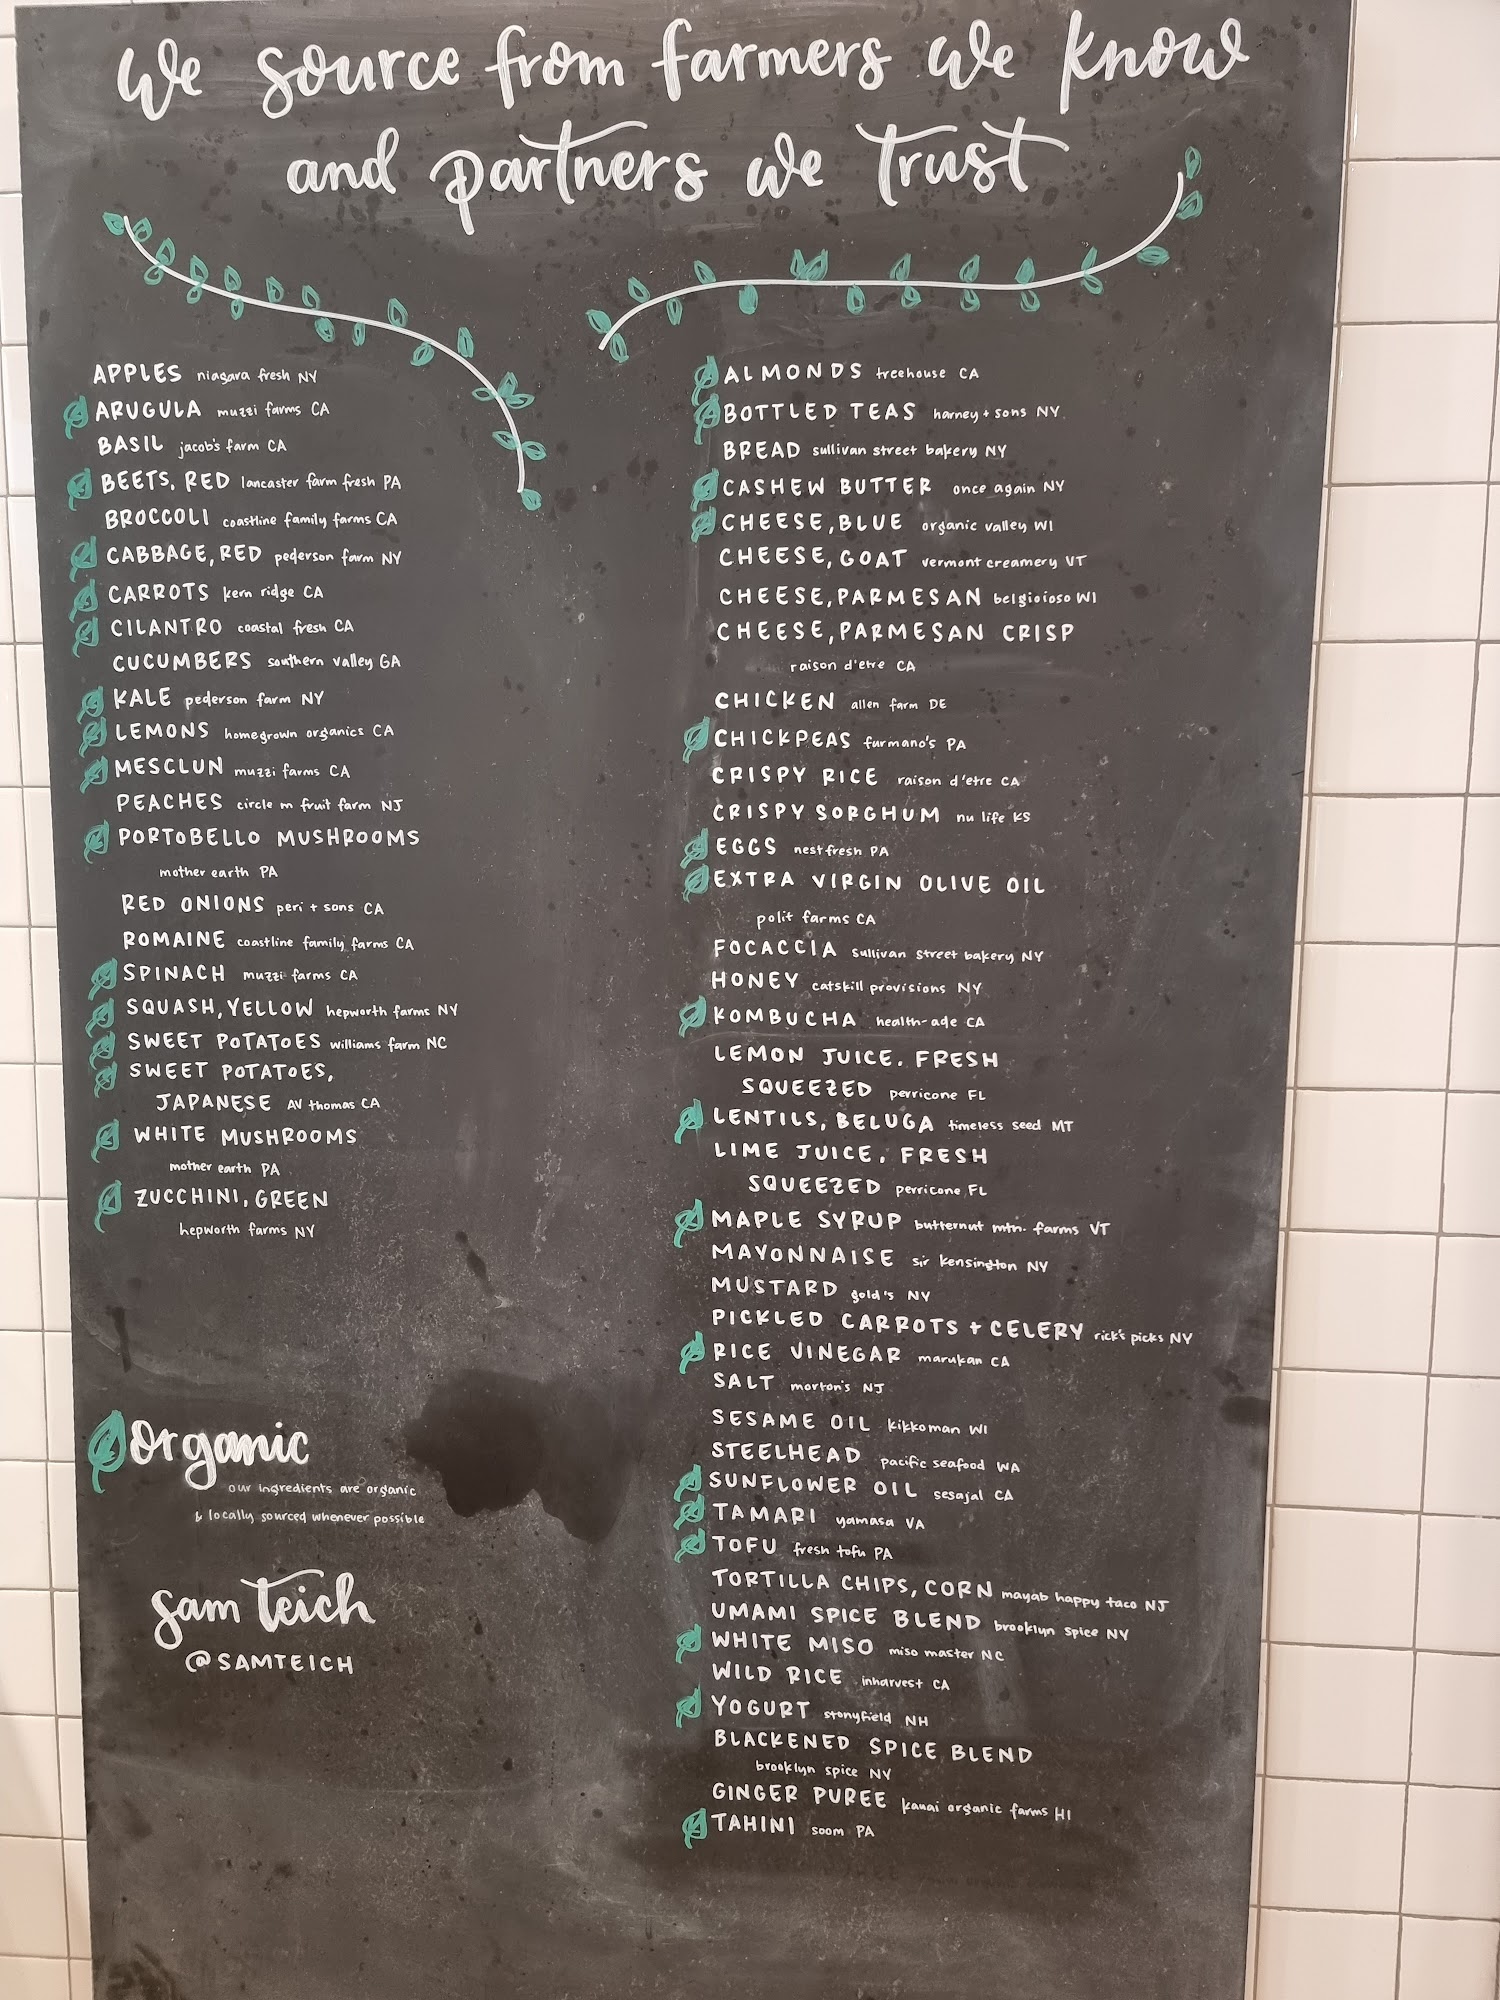 we source from farmers we know
and partners we trust
APPLES niagara fresh NY
ARUGULA muzzi farms CA
BASIL jacob's farm CA
BEETS, RED lancaster farm fresh PA
BROCCOLI coastline family farms CA
CABBAGE, RED pederson farm NY
CARROTS kern ridge CA
CILANTRO coastal fresh CA
CUCUMBERS southern valley GA
KALE pederson farm NY
LEMONS homegrown organics CA
MESCLUN muzzi farms CA
PEACHES circle m fruit farm NJ
PORTOBELLO MUSHROOMS
mother earth PA
RED ONIONS peri + sons CA
ROMAINE coastline family farms CA
SPINACH muzzi farms CA
SQUASH, YELLOW hepworth farms NY
SWEET POTATOES williams farm NC
SWEET POTATOES,
JAPANESE AV thomas CA
WHITE MUSHROOMS
mother earth PA
ZUCCHINI, GREEN
hepworth farms NY
organic
our ingredients are organic
& locally sourced whenever possible
sam teich
@SAMTEICH
ALMONDS treehouse CA
BOTTLED TEAS harney + sons NY
BREAD sullivan street bakery NY
CASHEW BUTTER once again NY
CHEESE, BLUE organic valley WI
CHEESE, GOAT vermont creamery VT
CHEESE, PARMESAN belgioioso WI
CHEESE, PARMESAN CRISP
raison d'etre CA
CHICKEN allen farm DE
CHICKPEAS furmano's PA
CRISPY RICE raison d'etre CA
CRISPY SORGHUM nu life KS
EGGS nestfresh PA
EXTRA VIRGIN OLIVE OIL
polit farms CA
FOCACCIA sullivan street bakery NY
HONEY catskill provisions NY
KOMBUCHA health-ade CA
LEMON JUICE, FRESH
SQUEEZED perricone FL
LENTILS, BELUGA timeless seed MT
LIME JUICE, FRESH
SQUEEZED perricone FL
MAPLE SYRUP butternut mtn. farms VT
MAYONNAISE sir kensington NY
MUSTARD gold's NY
PICKLED CARROTS + CELERY rick's picks NY
RICE VINEGAR marukan CA
SALT morton's NJ
SESAME OIL kikkoman WI
STEELHEAD pacific seafood WA
SUNFLOWER OIL sesajal CA
TAMARI yamasa VA
TOFU fresh tofu PA
TORTILLA CHIPS, CORN mayab happy taco NJ
UMAMI SPICE BLEND brooklyn spice NY
WHITE MISO miso master NC
WILD RICE inharvest CA
YOGURT stonyfield NH
BLACKENED SPICE BLEND
brooklyn spice NY
GINGER PUREE kauai organic farms HI
TAHINI soom PA